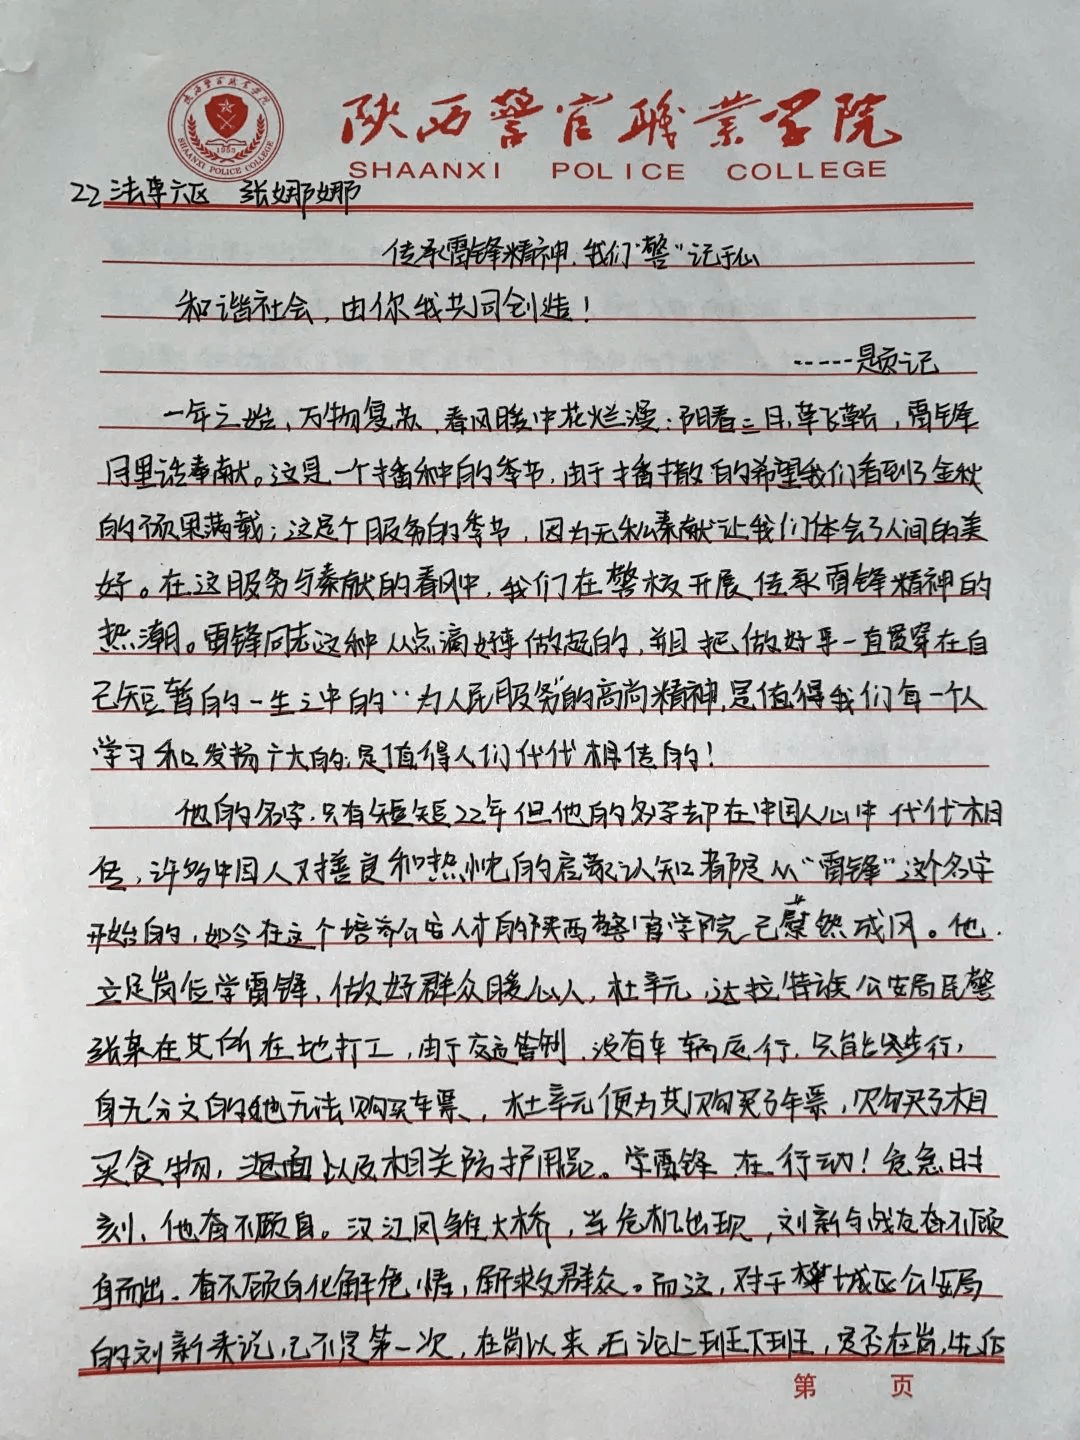 陕西警官职业学院
SHAANXI POLICE COLLEGE
陕西警官职业学院
SHAANXI POLICE COLLEGE
1953
22法事六区 张娜娜
传承雷锋精神,我们“警”记于心
和谐社会,由你我共同创造!
-----题记
一年之始、万物复苏,春风暖中花烂漫;阳春三月,草飞草长,雷锋
月里话奉献。这是一个播种的季节,由于播撒的希望我们看到了金秋
的硕果满载;这是个服务的季节,因为无私奉献让我们体会了人间的美
好。在这服务与奉献的春风中,我们在警校开展传承雷锋精神的
热潮。雷锋同志这种从点滴好事做起的,并且把做好事一直贯穿在自
己短暂的一生之中的“为人民服务”的高尚精神,是值得我们每一个人
学习和发扬广大的;是值得人们代代相传的!
他的名字,只有短短22年但他的名字却在中国人心中代代相
传,许多中国人对善良和热忱的启蒙认知都是从“雷锋”这个名字
开始的,如今在这个培养公安人才的陕西警官学院已蔚然成风。他
立足岗位学雷锋、做好群众暖心人,杜辛元,达拉特旗公安局民警
张某在其所在地打工,由于交通管制,没有车辆运行,只能步行,
身无分文的他无法购买车票,杜辛元便为其购买了车票,购买了相
买食物,泡面以及相关防护用品。学雷锋在行动!危急时
刻、他奋不顾身。汉江凤雏大桥,当危机出现,刘新与战友奋不顾
身而出、奋不顾身化解危情,解救群众。而这,对于樊城区公安局
的刘新来说,已不是第一次,在岗以来,无论上班下班,是否在岗,先后
第 页